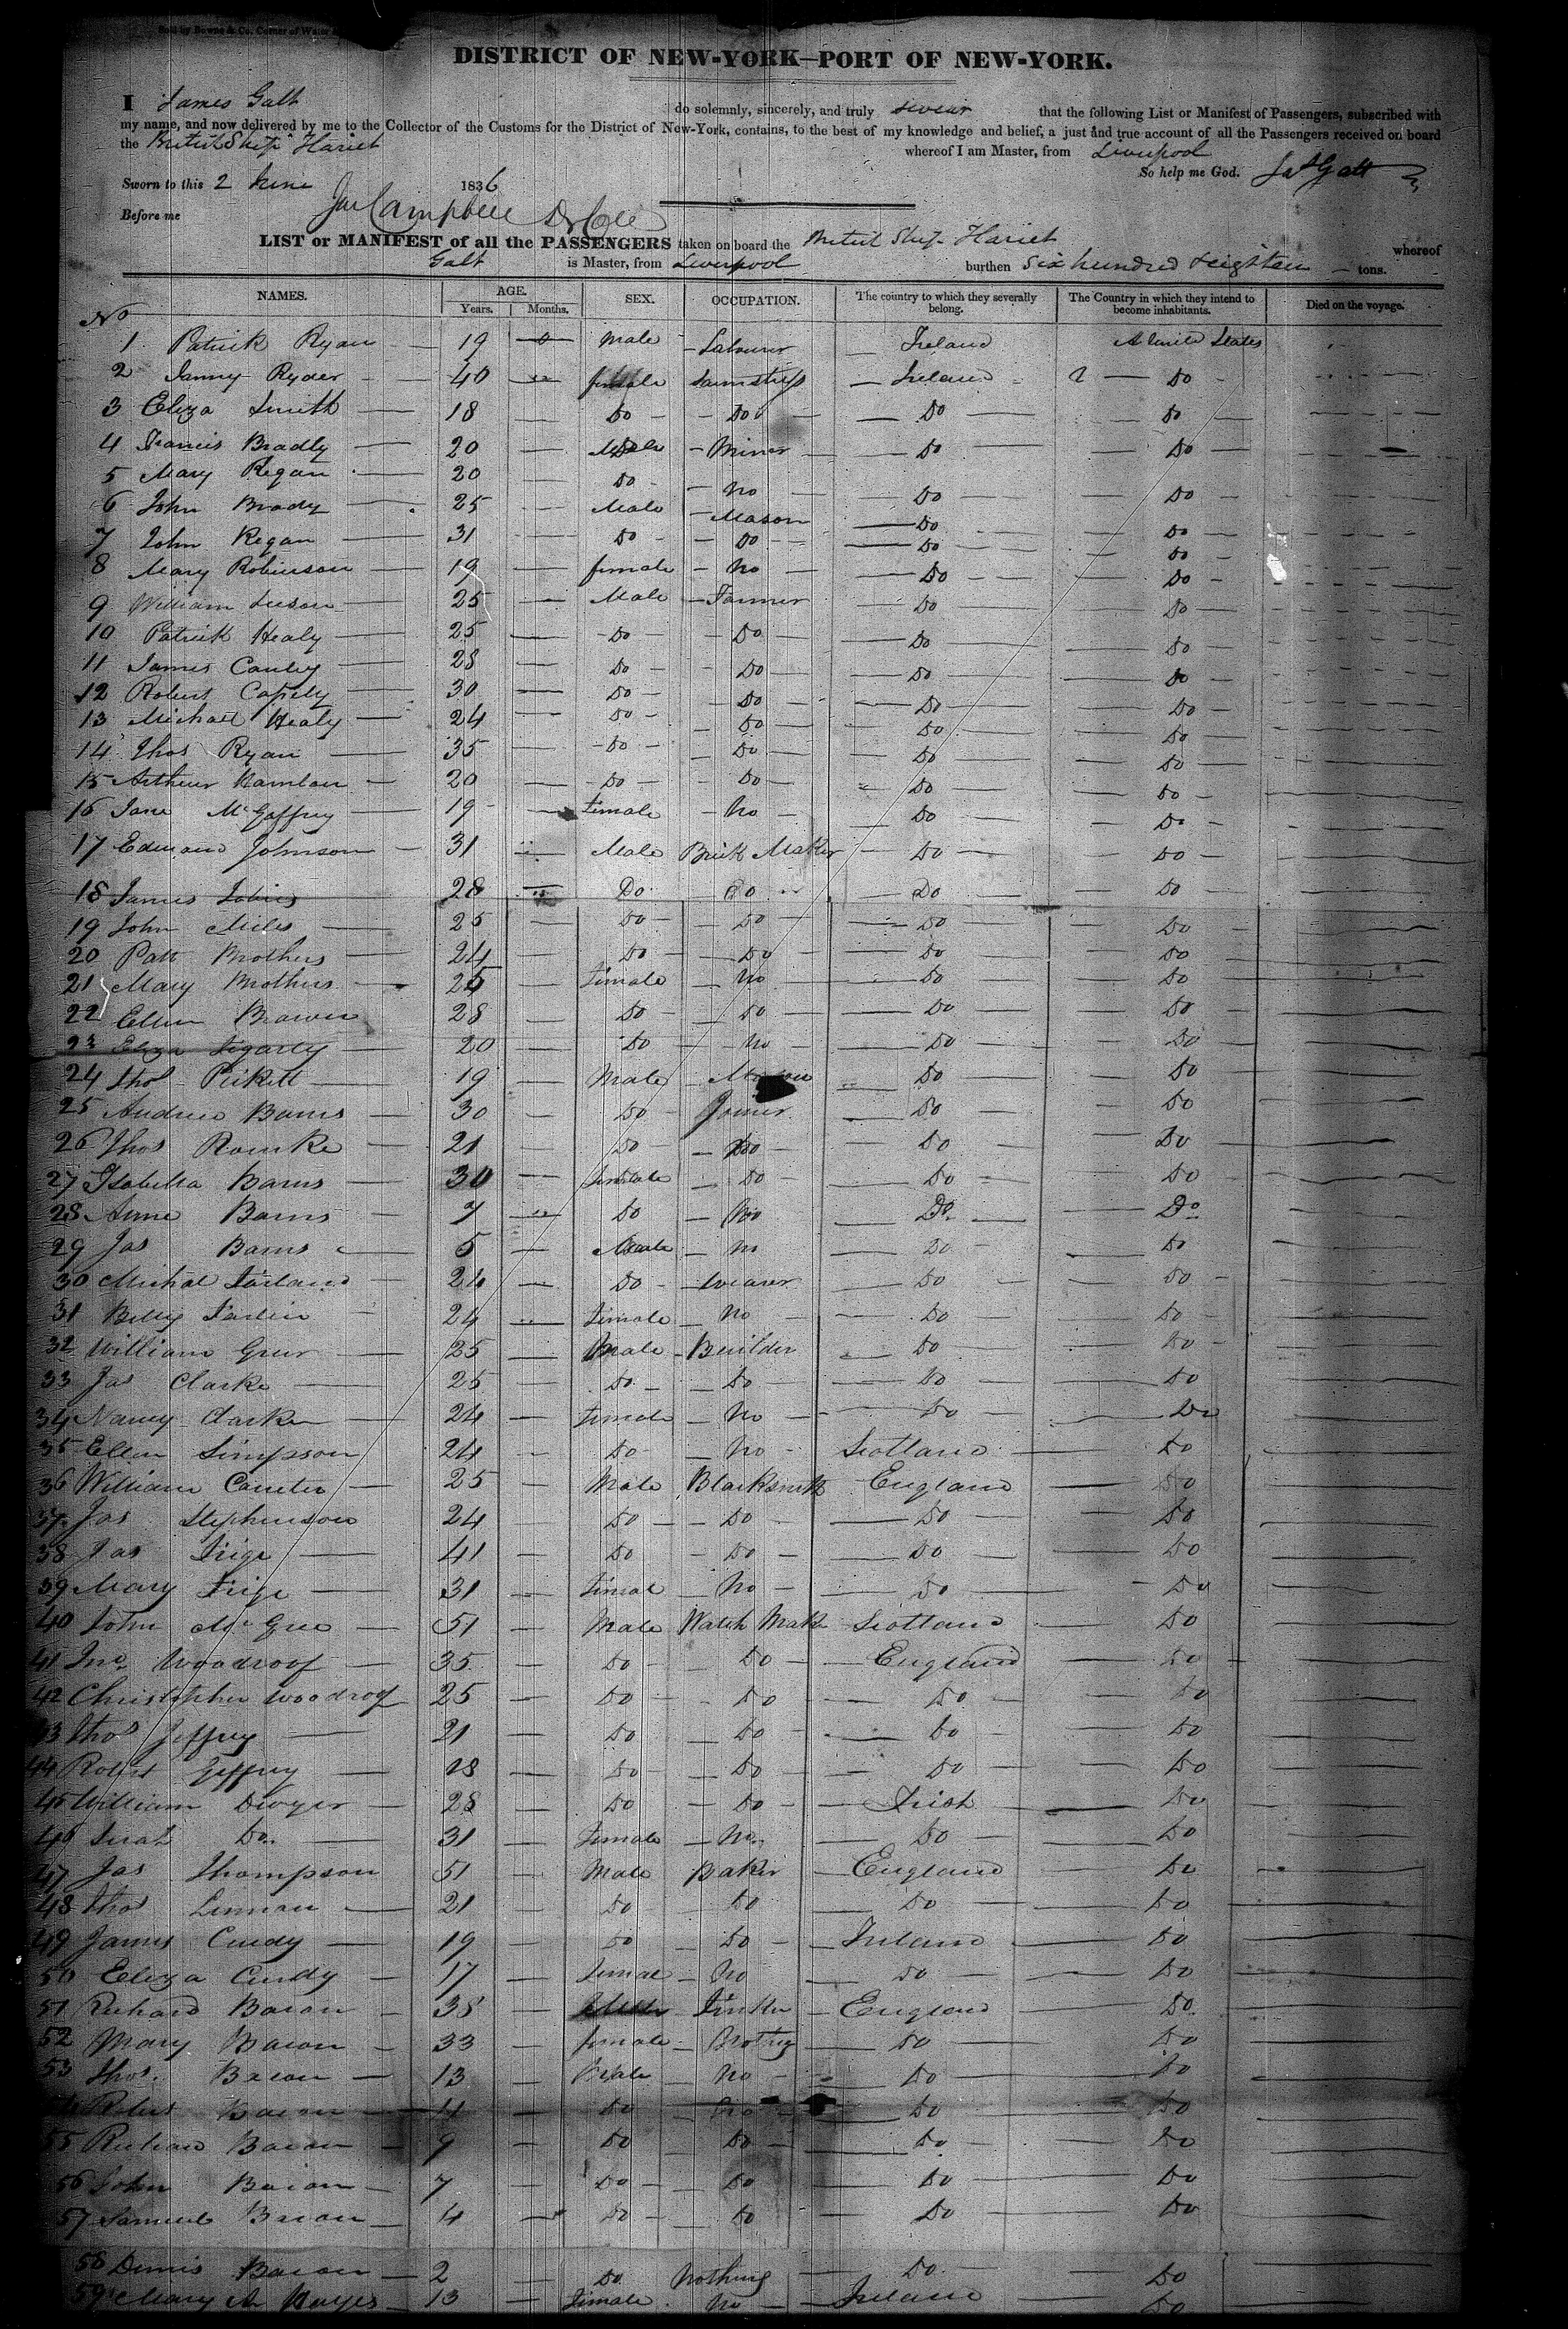 Sold by Bowne & Co. Corner of Water
DISTRICT OF NEW-YORK—PORT OF NEW-YORK.
I James Galt do solemnly, sincerely, and truly swear that the following List or Manifest of Passengers, subscribed with
my name, and now delivered by me to the Collector of the Customs for the District of New-York, contains, to the best of my knowledge and belief, a just and true account of all the Passengers received on board
the British Ship Hariet whereof I am Master, from Liverpool
So help me God. Jas Galt
Sworn to this 2 June 1836
Before me Jas Campbell
LIST or MANIFEST of all the PASSENGERS taken on board the British Ship Hariet whereof
Galt is Master, from Liverpool burthen Six hundred & eighteen tons.
No NAMES. AGE. Years. Months. SEX. OCCUPATION. The country to which they severally belong. The Country in which they intend to become inhabitants. Died on the voyage.
1 Patrick Ryan 19 Male Labourer Ireland United States
2 Ryder 40 female Ireland Do
3 Eliza Smith 18 Do Do Do Do
4 Francis Bradly 20 Male Miner Do Do
5 Mary Regan 20 Do No Do Do
6 John Brady 25 Male Mason Do Do
7 John Regan 31 Do Do Do Do
8 Mary Robinson 19 female No Do Do
9 William 25 Male Farmer Do Do
10 Patrick Healy 25 Do Do Do Do
11 James Cauley 28 Do Do Do Do
12 Robert 30 Do Do Do Do
13 Michael Healy 24 Do Do Do Do
14 Thos Ryan 35 Do Do Do Do
15 Arthur Hamlan 20 Do Do Do Do
16 Jane McGaffrey 19 female No Do Do
17 Edward Johnson 31 Male Brick Maker Do Do
18 James 28 Do Do Do Do
19 John Miles 25 Do Do Do Do
20 Patt Brothers 24 Do Do Do Do
21 Mary Brothers 25 female No Do Do
22 Ellen Brown 28 Do Do Do Do
23 Eliza 20 Do No Do Do
24 Thos Pickett 19 Male Do Do
25 Andrew Barns 30 Do Joiner Do Do
26 Thos Rourke 21 Do Do Do Do
27 Isabella Barns 30 female Do Do Do
28 Anne Barns 7 Do No Do Do
29 Jas Barns 5 Male No Do Do
30 Michal 24 Do weaver Do Do
31 Betty 24 female No Do Do
32 William Greer 25 Male Builder Do Do
33 Jas Clarke 25 Do Do Do Do
34 Nancy Clarke 24 female No Do Do
35 Ellen Simpson 24 Do No Scotland Do
36 William 25 Male Blacksmith England Do
37 Jas Stephenson 24 Do Do Do Do
38 Jas 41 Do Do Do Do
39 Mary 31 female No Do Do
40 John McGree 51 Male Watch Maker Scotland Do
41 Jno. Woodroof 35 Do Do England Do
42 Christopher Woodroof 25 Do Do Do Do
43 Thos Jeffrey 21 Do Do Do Do
44 Robert Jeffrey 18 Do Do Do Do
45 William Dwyer 28 Do Do Irish Do
46 Do. 31 female No. Do Do
47 Jas Thompson 51 Male Baker England Do
48 Thos 21 Do Do Do Do
49 James Curdy 19 Do Do Ireland Do
50 Eliza Curdy 17 female No Do Do
51 Richard Bacon 38 England Do
52 Mary Bacon 33 female Do Do
53 Thos. Bacon 13 Male No Do Do
54 Robert Bacon 11 Do No Do Do
55 Richard Bacon 9 Do Do Do Do
56 John Bacon 7 Do Do Do Do
57 Samuel Bacon 4 Do Do Do Do
58 Dennis Bacon 2 Do Nothing Do Do
59 Mary A Hayes 13 female No Ireland Do